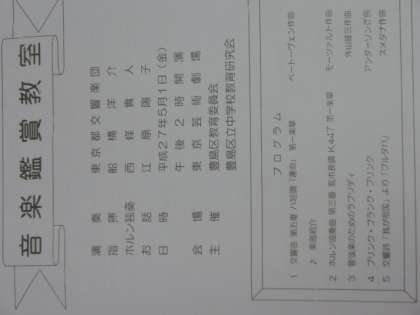 音楽鑑賞教室
演奏 東京都交響楽団
指揮 船橋洋介
ホルン独奏 西條貴人
お話 江原陽子
日時 平成27年5月1日(金)
午後2時開演
会場 東京芸術劇場
主催 豊島区教育委員会
豊島区立中学校教育研究会
プログラム
1 交響曲 第五番 ハ短調「運命」第一楽章 ベートーヴェン作曲
♪ 楽器紹介
2 ホルン協奏曲 第三番 変ホ長調 K.447 第一楽章 モーツァルト作曲
3 管弦楽のためのラプソディ 外山雄三作曲
4 プリンク・プランク・プルンク アンダーソン作曲
5 交響詩「我が祖国」より「ブルタバ」 スメタナ作曲